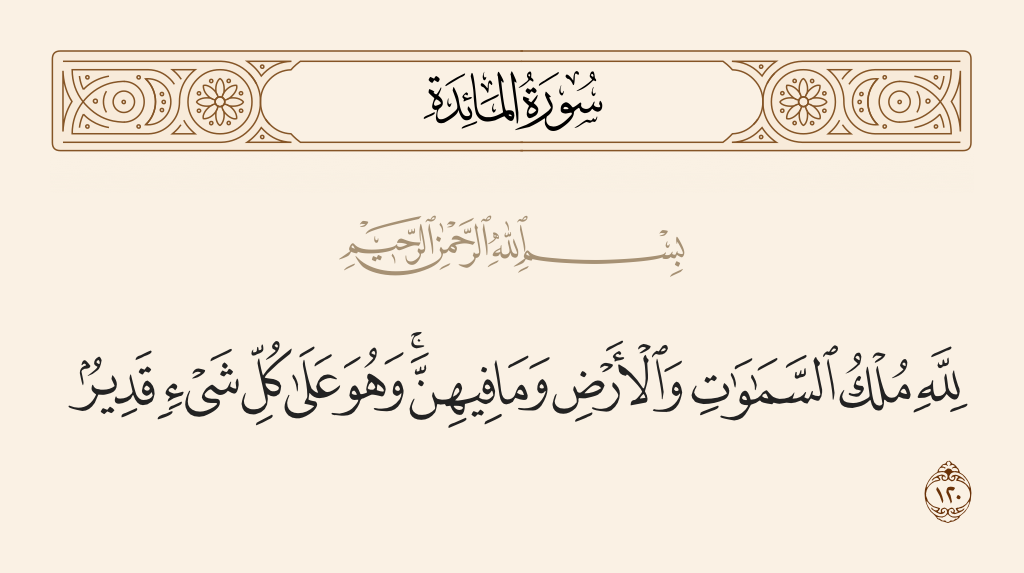 سُورَةُ المَائِدَةِ
بِسْمِ ٱللَّهِ ٱلرَّحْمَٰنِ ٱلرَّحِيمِ
لِلَّهِ مُلْكُ ٱلسَّمَٰوَٰتِ وَٱلْأَرْضِ وَمَا فِيهِنَّ ۚ وَهُوَ عَلَىٰ كُلِّ شَىْءٍ قَدِيرٌۢ
١٢٠